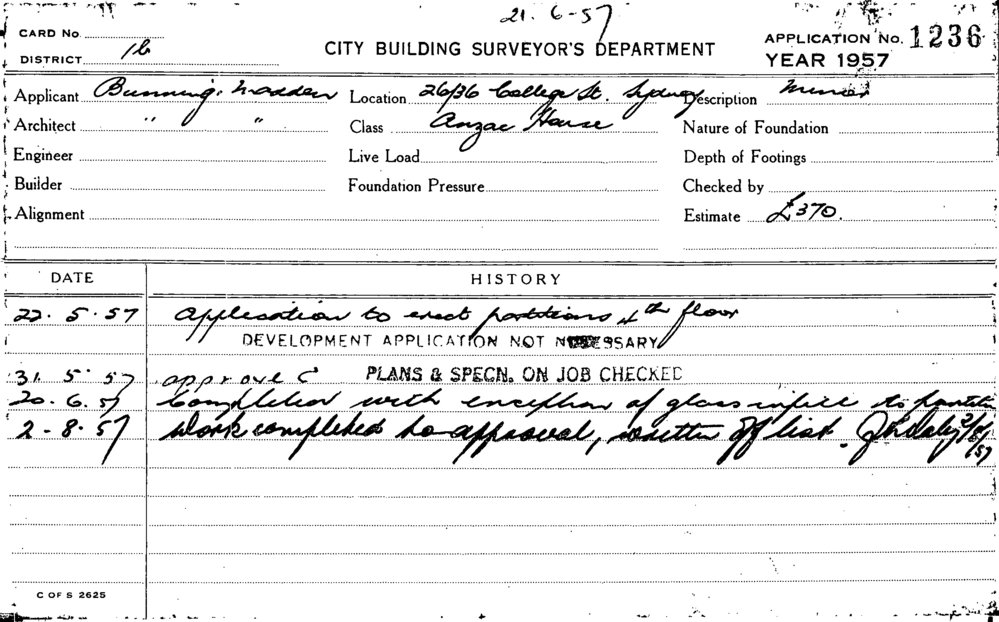 21. 6-57
CARD No.
DISTRICT 1b
CITY BUILDING SURVEYOR'S DEPARTMENT
APPLICATION No. 1236
YEAR 1957
Applicant Bunning & Madden Location 26/36 College St. Sydney Description Minor
Architect " " Class Anzac House Nature of Foundation
Engineer Live Load Depth of Footings
Builder Foundation Pressure Checked by
Alignment Estimate £370.
DATE HISTORY
22. 5. 57 Application to erect partitions 4th floor
DEVELOPMENT APPLICATION NOT NECESSARY
31. 5. 57 approved PLANS & SPECN. ON JOB CHECKED
20. 6. 57 Completed with exception of glass infill to
2-8.57 Work completed to approval, written off list.
C OF S 2625